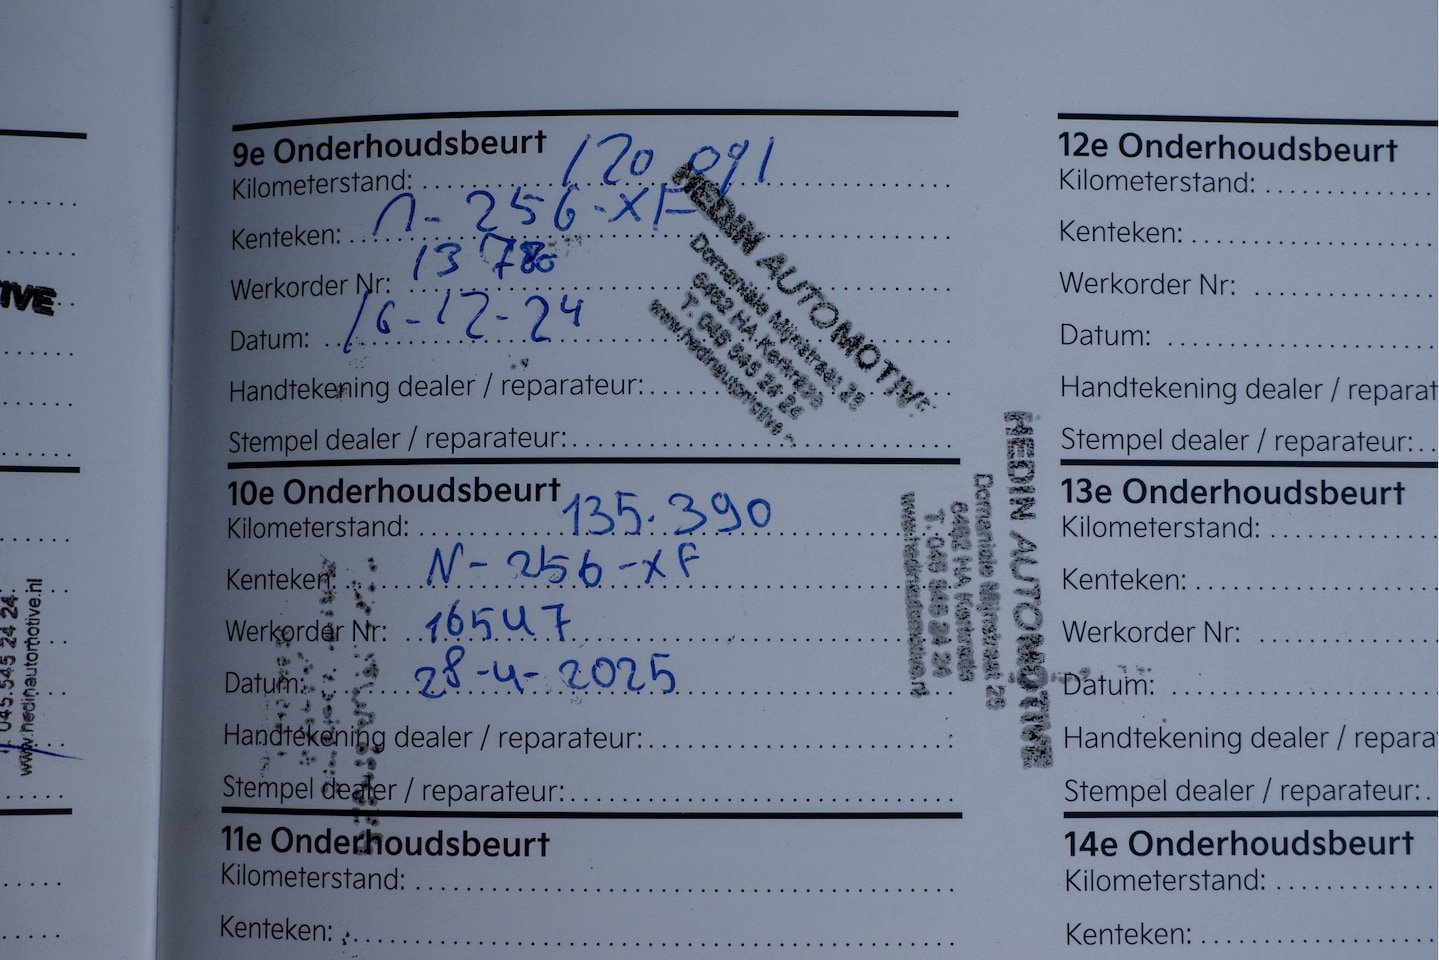 IVE
045.545 24 24
www.hedinautomotive.nl
9e Onderhoudsbeurt
Kilometerstand: 120 091
Kenteken: N-256-XF
Werkorder Nr: 13780
Datum: 16-12-24
Handtekening dealer / reparateur:
Stempel dealer / reparateur:
HEDIN AUTOMOTIVE
Domaniale Mijnstraat 25
6462 HA Kerkrade
T. 045 545 24 24
www.hedinautomotive.n
10e Onderhoudsbeurt
Kilometerstand: 135.390
Kenteken: N-256-XF
Werkorder Nr: 16547
Datum: 28-4-2025
Handtekening dealer / reparateur:
Stempel dealer / reparateur:
HEDIN AUTOMOTIVE
Domaniale Mijnstraat 25
6462 HA Kerkrade
T. 045 545 24 24
www.hedinautomotive.nl
11e Onderhoudsbeurt
Kilometerstand:
Kenteken:
12e Onderhoudsbeurt
Kilometerstand:
Kenteken:
Werkorder Nr:
Datum:
Handtekening dealer / reparat
Stempel dealer / reparateur:
13e Onderhoudsbeurt
Kilometerstand:
Kenteken:
Werkorder Nr:
Datum:
Handtekening dealer / repara
Stempel dealer / reparateur:
14e Onderhoudsbeurt
Kilometerstand:
Kenteken: